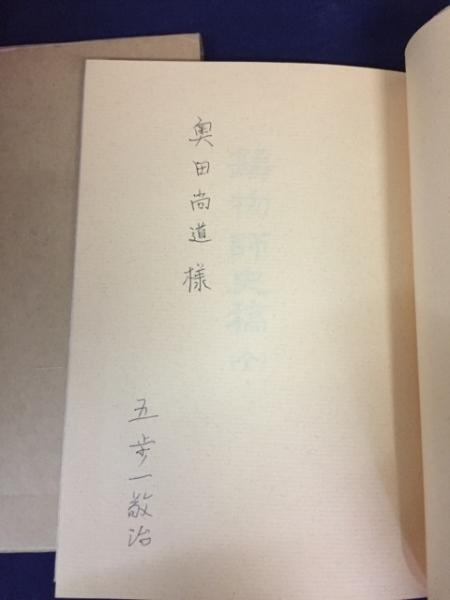 物師史稿
奥田尚道 様
五歩一敬治